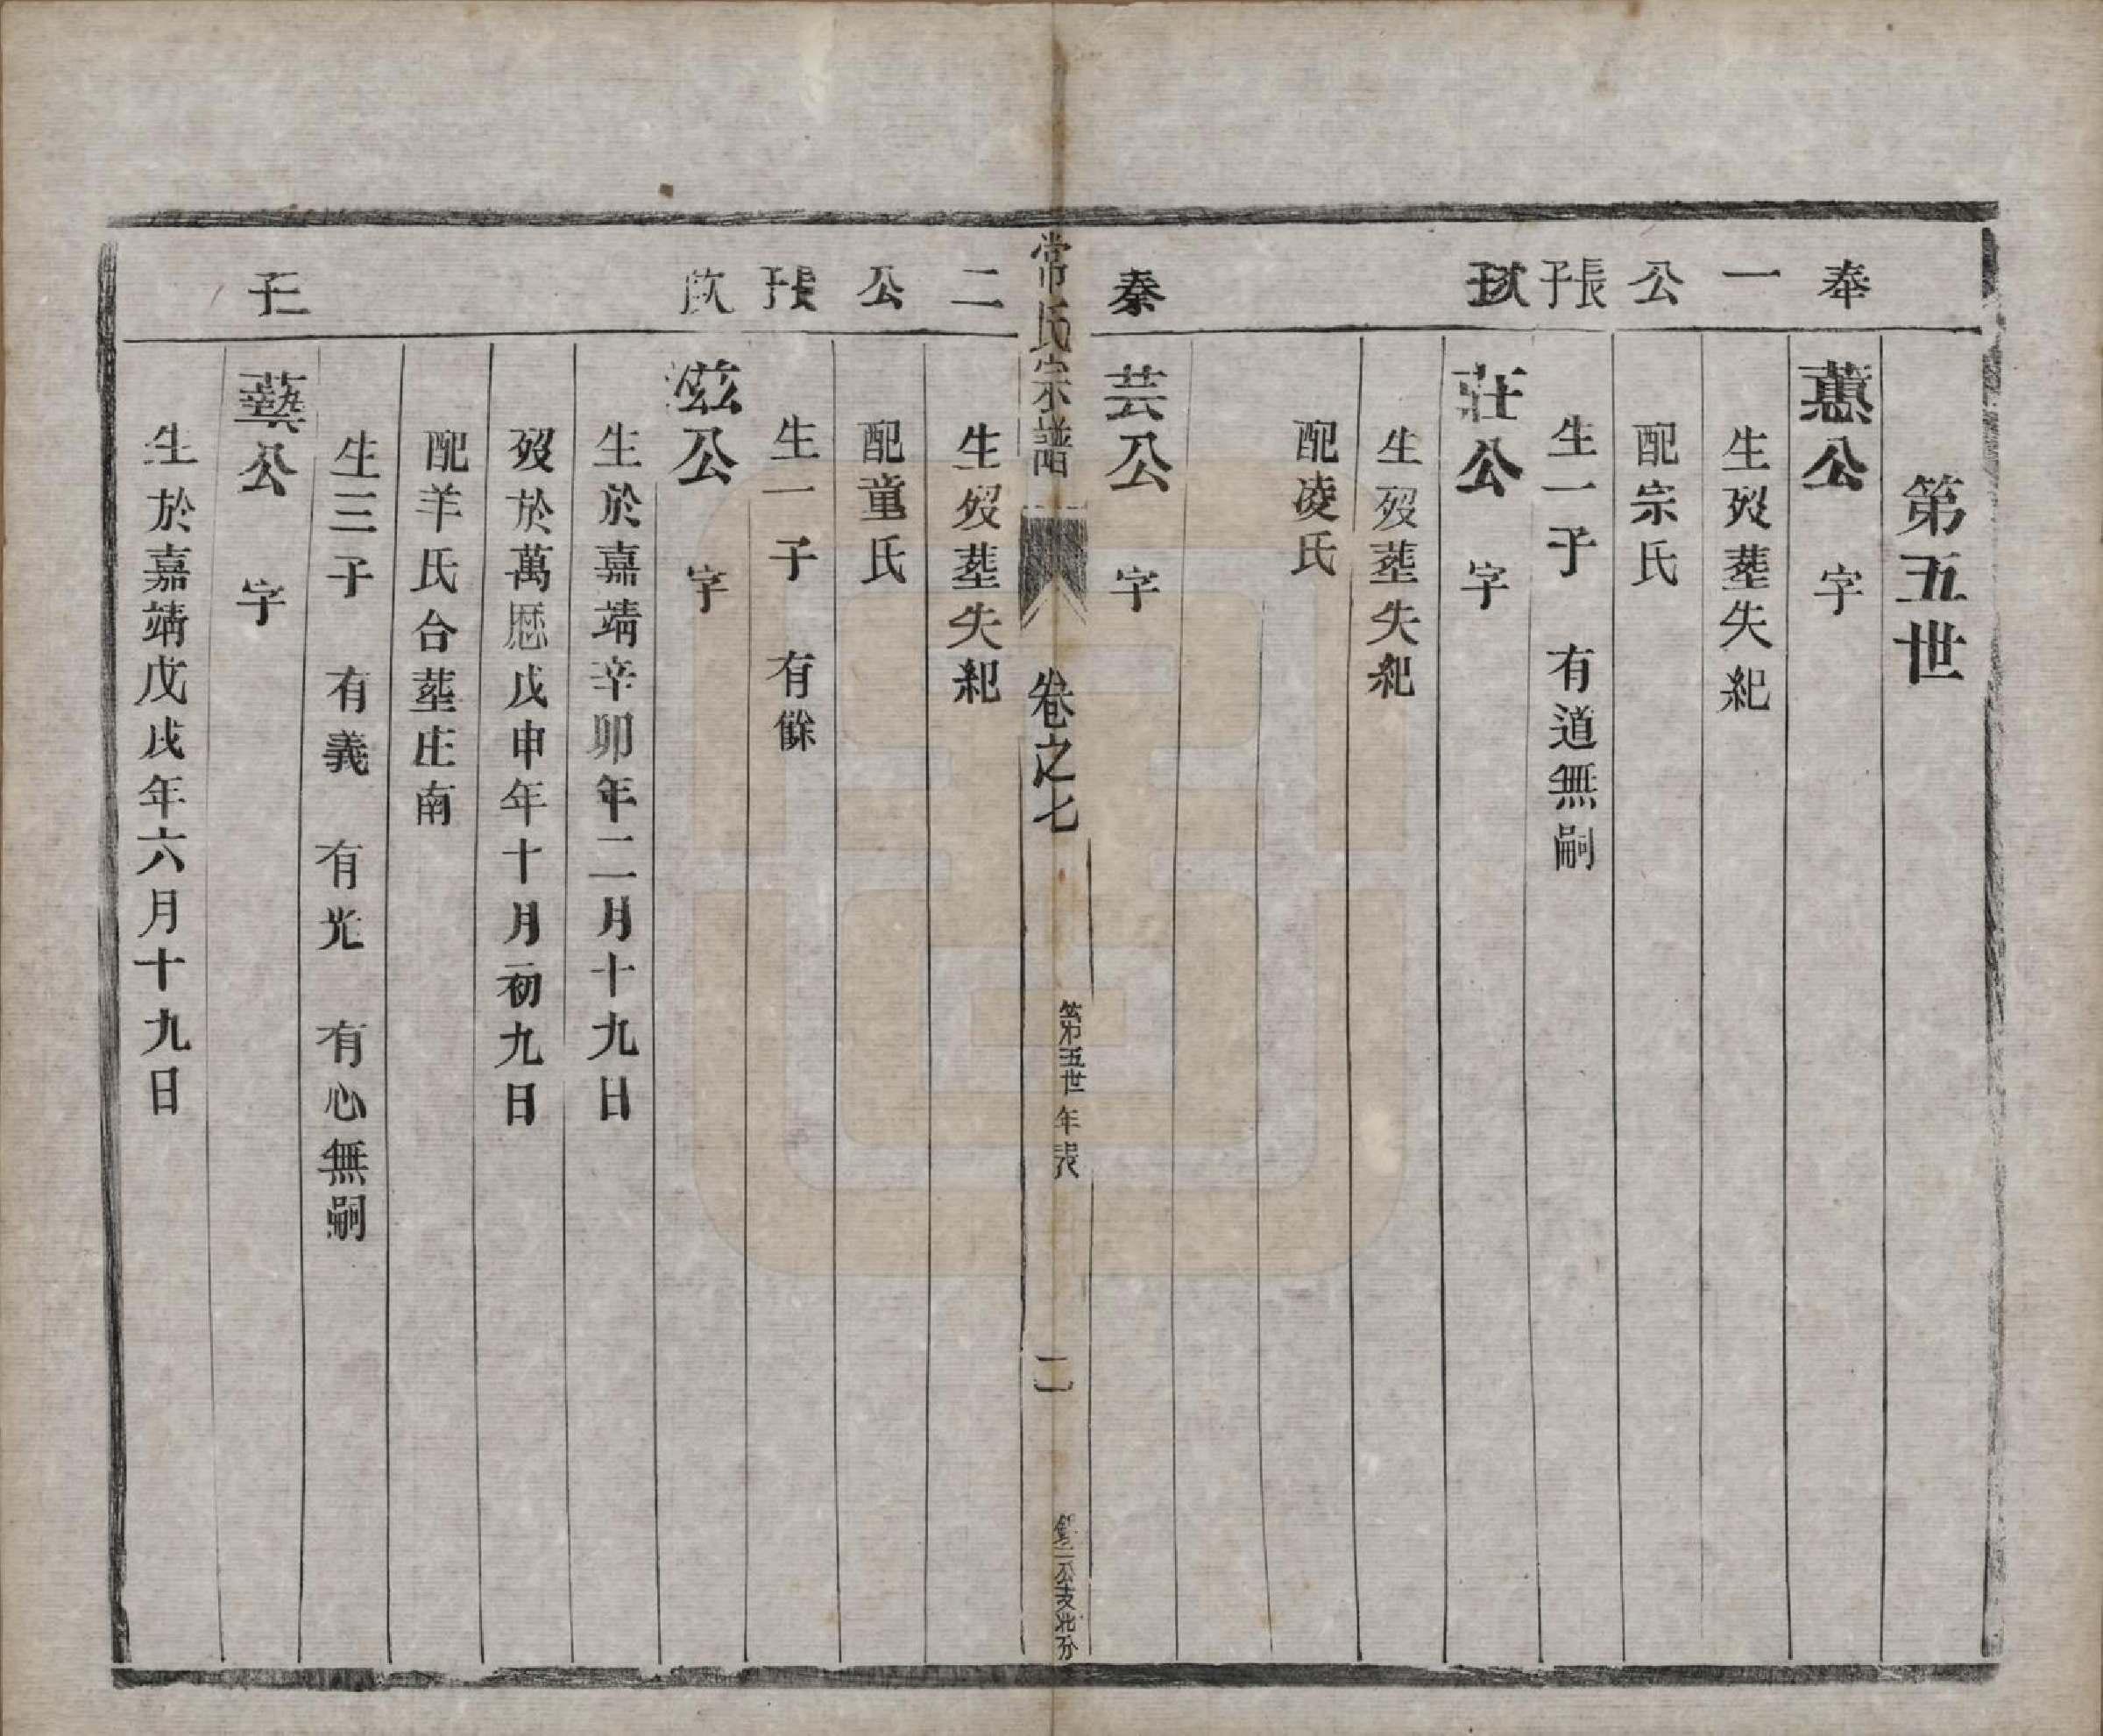 第五世
奉一公長子
蕙公 字
生歿塟失紀
配宗氏
生一子 有道無嗣
次子
莊公 字
生歿塟失紀
配凌氏
秦二公長子
芸公 字
常氏宗譜 卷之七 第五世年表 二 公支北分
生歿塟失紀
配童氏
生一子 有餘
次
茲公 字
生於嘉靖辛卯年二月十九日
歿於萬曆戊申年十月初九日
配羊氏合塟庄南
生三子 有義 有光 有心無嗣
三子
藝公 字
生於嘉靖戊戌年六月十九日